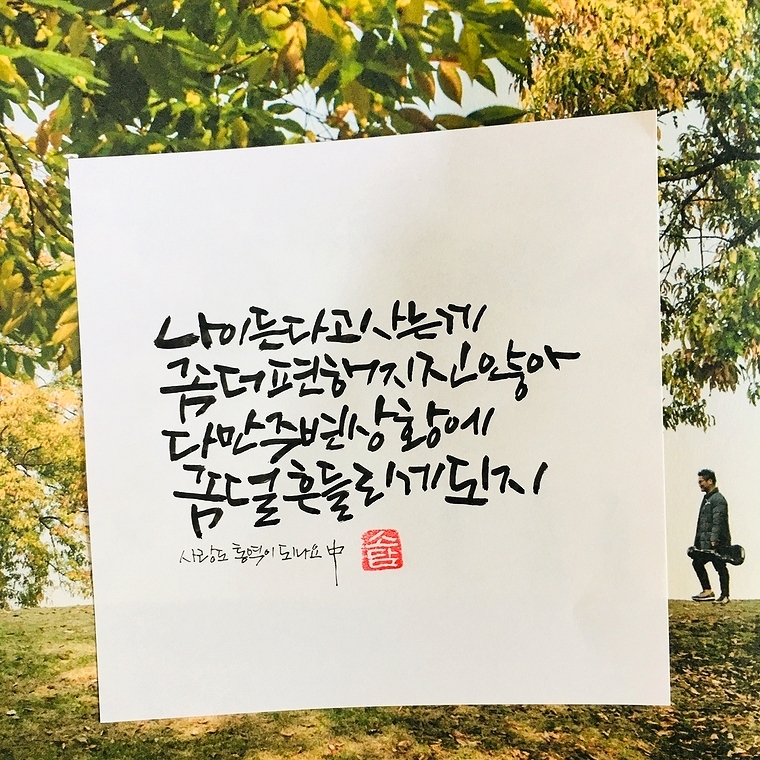 나이든다고 사는게
좀 더 편해지진 않아
다만 주변상황에
좀 덜 흔들리게 되지
사랑도 통역이 되나요 中
소담